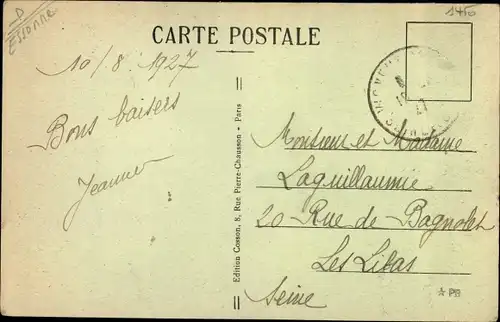 D
ESSONNE
1450
CARTE POSTALE
10/8 1927
Bons baisers
Jeanne
Edition Cosson, 8, Rue Pierre-Chausson - Paris
Monsieur et Madame
Laguillaumie
20 Rue de Bagnolet
Les Lilas
Seine